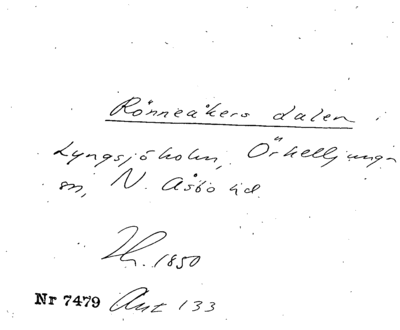 Rönneåkers dalen
Lyngsjöholm, Örkelljunga
sn, N. Åsbo hd
Th. 1850
Nr 7479 Ant 133